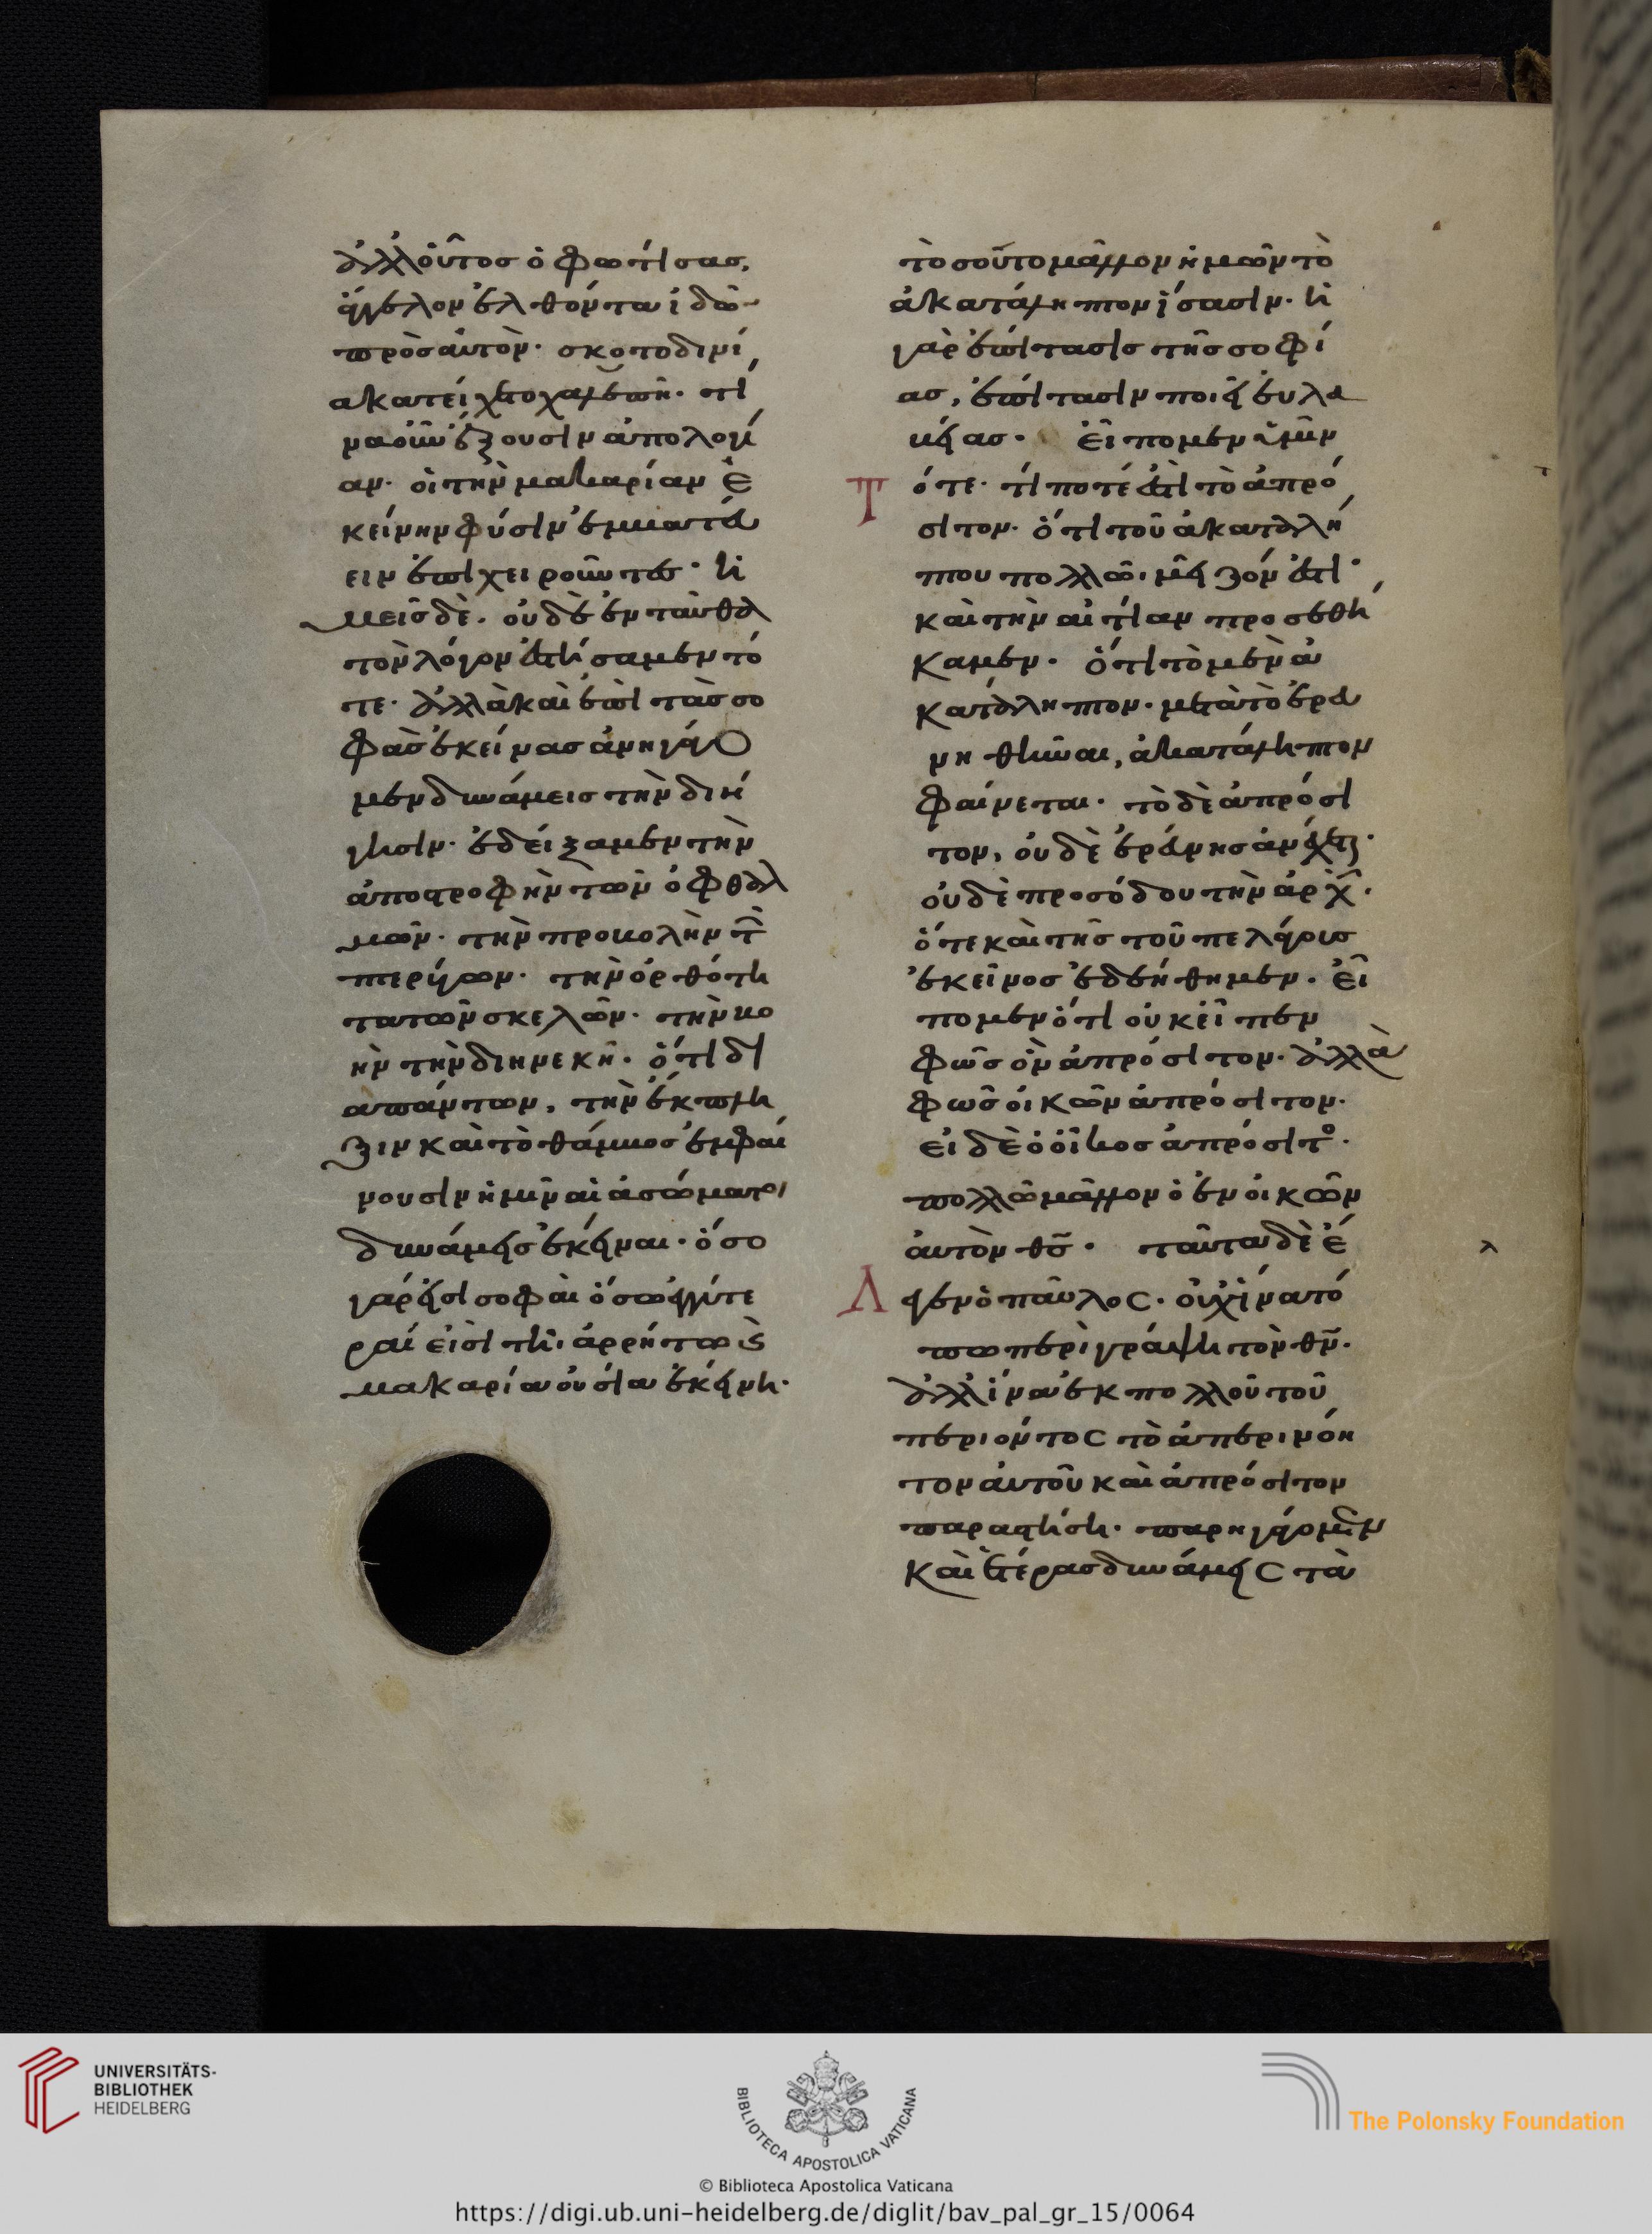 ἀλλ οὗτος ὁ φωτίσας,
ἄγγελον ἐλθόντα ἰδὼν
πρὸς αὐτὸν· σκοτοδινί
α κατείχετο χαλεπῆ· τί
να οὖν ἕξουσιν ἀπολογί
αν· οἱ τὴν μακαρίαν ἐ
κείνην φύσιν ἐμβατεύ
ειν ἐπιχειροῦντες· ἡ
μεῖς δὲ· οὐδὲ ἐνταῦθα
τὸν λόγον ἐστήσαμεν τό
τε· ἀλλὰ καὶ ἐπὶ τὰς σο
φὰς ἐκείνας ἀνηγάγο
μεν δυνάμεις τὴν διή
γησιν· ἐδείξαμεν τὴν
ἀποστροφὴν τῶν ὀφθαλ
μῶν· τὴν προβολὴν τῶν
πτερύγων· τὴν ὀρθότη
τα τῶν σκελῶν· τὴν βο
ὴν τὴν διηνεκῆ· ὅτι δι
απάντων, τὴν ἔκπλη
ξιν καὶ τὸ θάμβος ἐμφαί
νουσιν ἡμῖν αἱ ἀσώματοι
δυνάμεις ἐκεῖναι· ὅσο
γάρ εἰσι σοφαὶ ὅσω ἐγγύτε
ραί εἰσι τῆι ἀρρήτω καὶ
μακαρία οὐσία ἐκείνη·
τοσοῦτο μᾶλλον ἡμῶν τὸ
ἀκατάληπτον ἴσασιν· ἡ
γὰρ ἐπίτασις τῆς σοφί
ας, ἐπίτασιν ποιεῖ εὐλα
βείας· εἴπομεν ὑμῖν
τότε· τί ποτέ ἐστι τὸ ἀπρό
σιτον· ὅτι τοῦ ἀκαταλή
πτου πολλῶι μεῖζόν ἐστι·
καὶ τὴν αἰτίαν προσεθή
καμεν· ὅτι τὸ μὲν ἀ
κατάληπτον· μετὰ τὸ ἐρευ
νηθῆναι, ἀκατάληπτον
φαίνεται· τὸ δὲ ἀπρόσι
τον, οὐδὲ ἐρεύνης ἀνέχεται·
οὐδὲ προσόδου τὴν ἀρχὴν·
ὅτε καὶ τῆς τοῦ πελάγους
εἰκόνος ἐδεήθημεν· εἴ
πομεν ὅτι οὐκ εἶπεν
φῶς ὢν ἀπρόσιτον· ἀλλὰ
φῶς οἰκῶν ἀπρόσιτον·
εἰ δὲ ὁ οἶκος ἀπρόσιτος·
πολλῶ μᾶλλον ὁ ἐνοικῶν
αὐτὸν θς· ταῦτα δὲ ἔ
λεγεν ὁ παῦλος· οὐχ ἵνα τό
πω περιγράψη τὸν θν·
ἀλλ ἵνα ἐκ πολλοῦ τοῦ
περιόντος τὸ ἀπερινόη
τον αὐτοῦ καὶ ἀπρόσιτον
παραστήση· παρηγάγομεν
καὶ ἑτέρας δυνάμεις τὰ
UNIVERSITÄTS-
BIBLIOTHEK
HEIDELBERG
BIBLIOTECA APOSTOLICA VATICANA
The Polonsky Foundation
© Biblioteca Apostolica Vaticana
https://digi.ub.uni-heidelberg.de/diglit/bav_pal_gr_15/0064